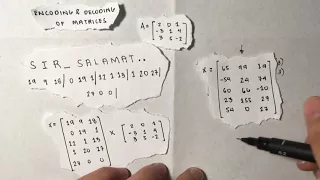 ENCODING & DECODING
OF MATRICES
A = [2 0 1
-3 1 4
3 5 -2]
SIR_SALAMAT..
19 9 18/ 0 19 1/ 12 1 13/ 1 20 27/
27 0 0/
[19 9 18
0 19 1
1 20 27
27 0 0]
X [2 0 1
-3 1 4
3 5 -2]
X = [65 99 19
-54 24 74
60 66 -10
23 155 27
54 0 27]